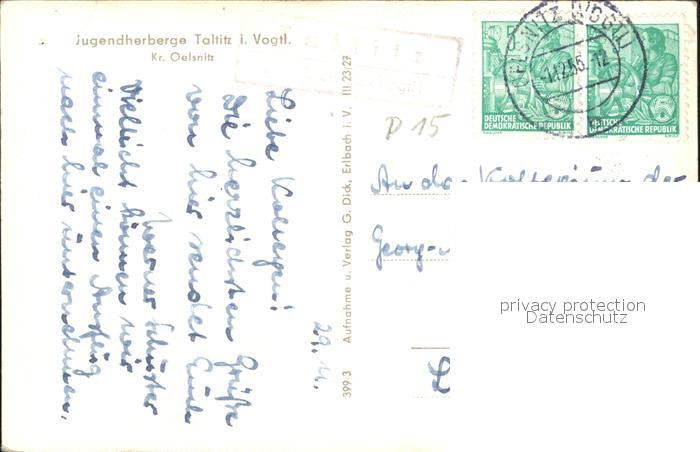 Jugendherberge Taltitz i. Vogtl.
Kr. Oelsnitz
29. 11.
Liebe Kollegen!
Die herzlichsten Grüße
von hier sendet Euch
Werner
Vielleicht können wir
einmal einen Ausflug
nach hier unternehmen.
399 3 Aufnahme u. Verlag G. Dick, Erlbach i. V. III 23 27
DEUTSCHE
DEMOKRATISCHE REPUBLIK
DEUTSCHE
DEMOKRATISCHE REPUBLIK
OELSNITZ (VOGTL)
P 15
An das Kollegium der
Georg-
privacy protection
Datenschutz